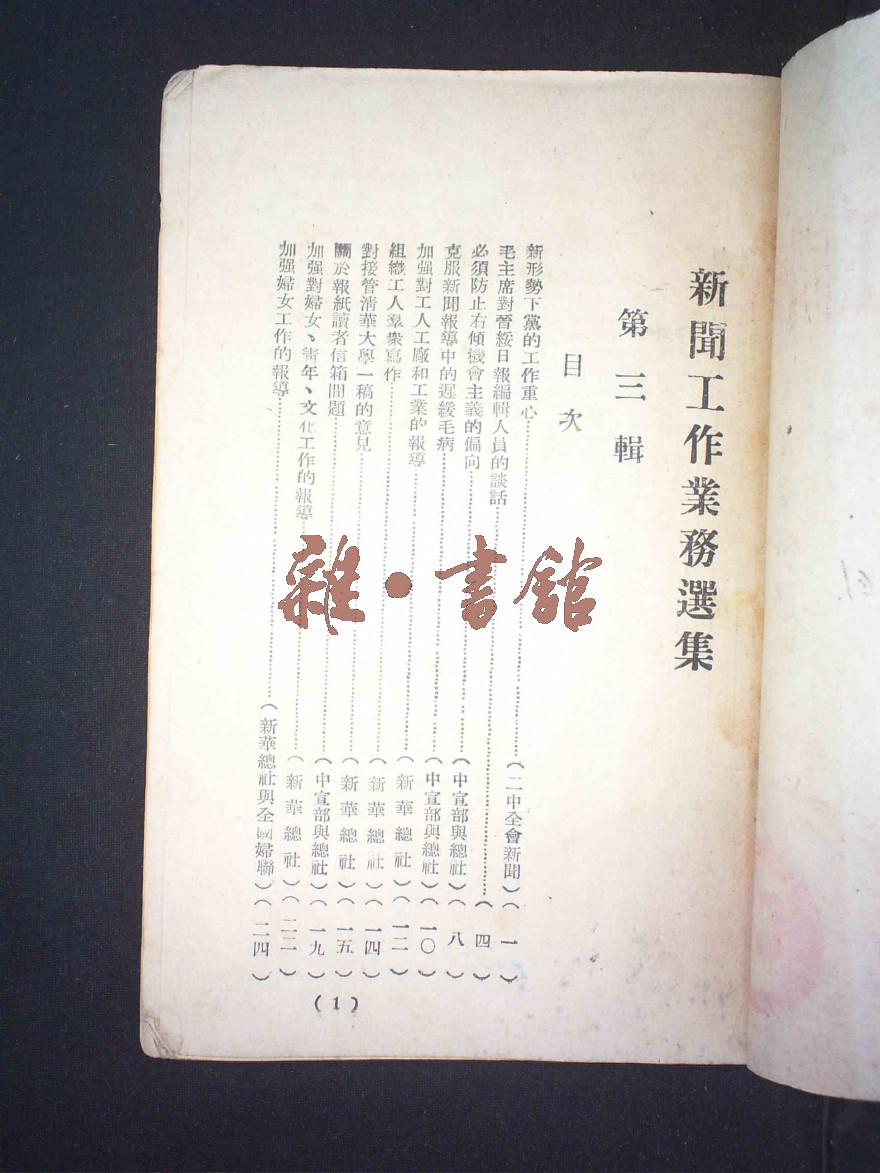 新聞工作業務選集
第三輯
目次
新形勢下黨的工作重心……(二中全會新聞)(一)
毛主席對晉綏日報編輯人員的談話……(四)
必須防止右傾機會主義的偏向……(中宣部與總社)(八)
克服新聞報導中的遲緩毛病……(中宣部與總社)(一〇)
加强對工人工廠和工業的報導……(新華總社)(一二)
組織工人羣衆寫作……(新華總社)(一四)
對接管清華大學一稿的意見……(新華總社)(一五)
關於報紙讀者信箱問題……(中宣部與總社)(一九)
加强對婦女、青年、文化工作的報導……(新華總社)(二二)
加强婦女工作的報導……(新華總社與全國婦聯)(二四)
(1)
雜·書館